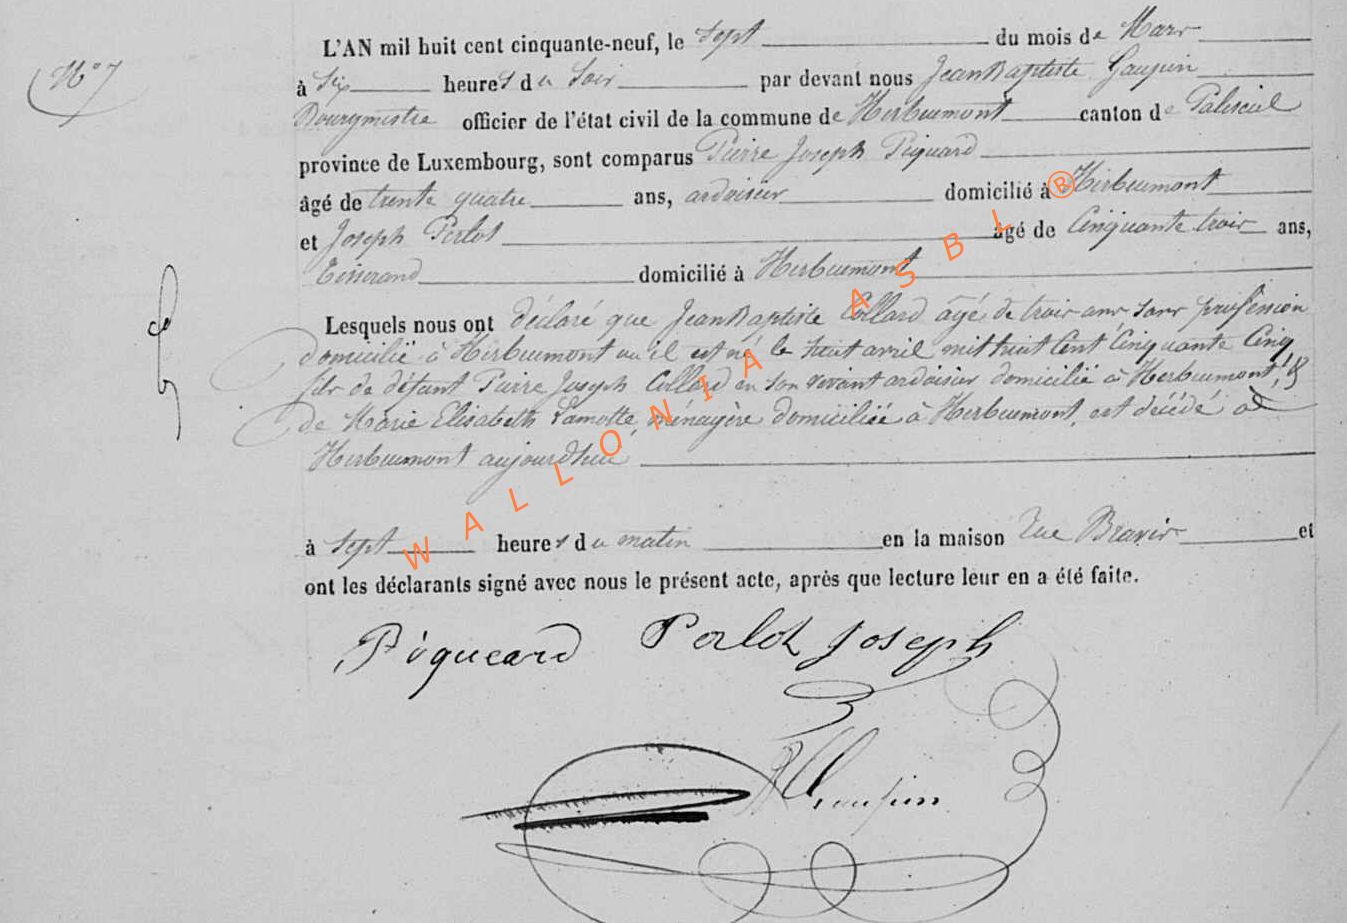 N° 7
L'AN mil huit cent cinquante-neuf, le sept du mois de Mars
à six heures du soir par devant nous Jean Baptiste Gaupin
Bourgmestre officier de l'état civil de la commune de Herbeumont canton de Paliseul
province de Luxembourg, sont comparus Pierre Joseph Piquard
âgé de trente quatre ans, ardoisier domicilié à Herbeumont
et Joseph Perlot âgé de Cinquante trois ans,
Tisserand domicilié à Herbeumont
Lesquels nous ont déclaré que Jean Baptiste Collard âgé de trois ans sans profession
domicilié à Herbeumont où il est né le huit avril mil huit Cent Cinquante Cinq
fils de défunt Pierre Joseph Collard en son vivant ardoisier domicilié à Herbeumont, &
de Marie Elisabeth Lamotte, ménagère domiciliée à Herbeumont, est décédé à
Herbeumont aujourd'hui
à sept heures du matin en la maison rue et
ont les déclarants signé avec nous le présent acte, après que lecture leur en a été faite.
Piqueard Perlot Joseph
Gaupin
WALLONIA ASBL ®